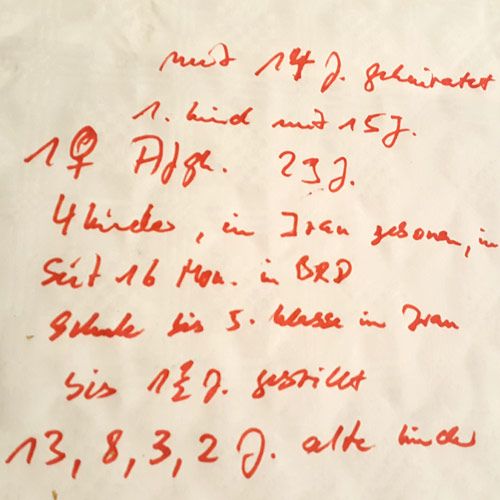 mit 14 J. geheiratet
1. Kind mit 15 J.
1 ♀ Afgh. 29 J.
4 Kinder, in Iran geboren, in
Seit 16 Mon. in BRD
Schule bis 5. Klasse in Iran
bis 1½ J. gestillt
13, 8, 3, 2 J. alte Kinder